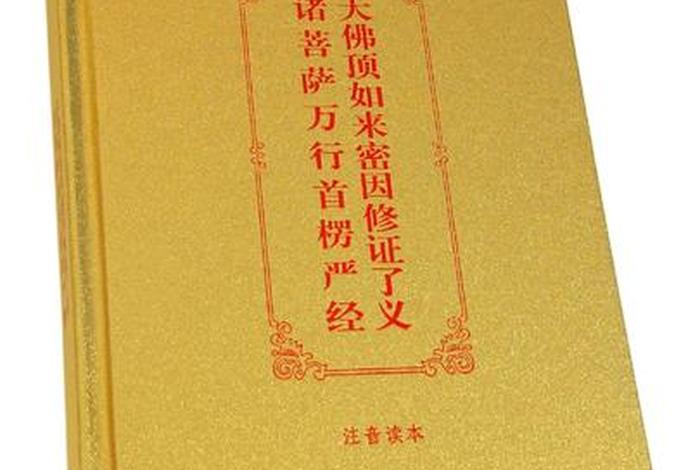 大佛顶如来密因修证了义
诸菩萨万行首楞严经
注音读本